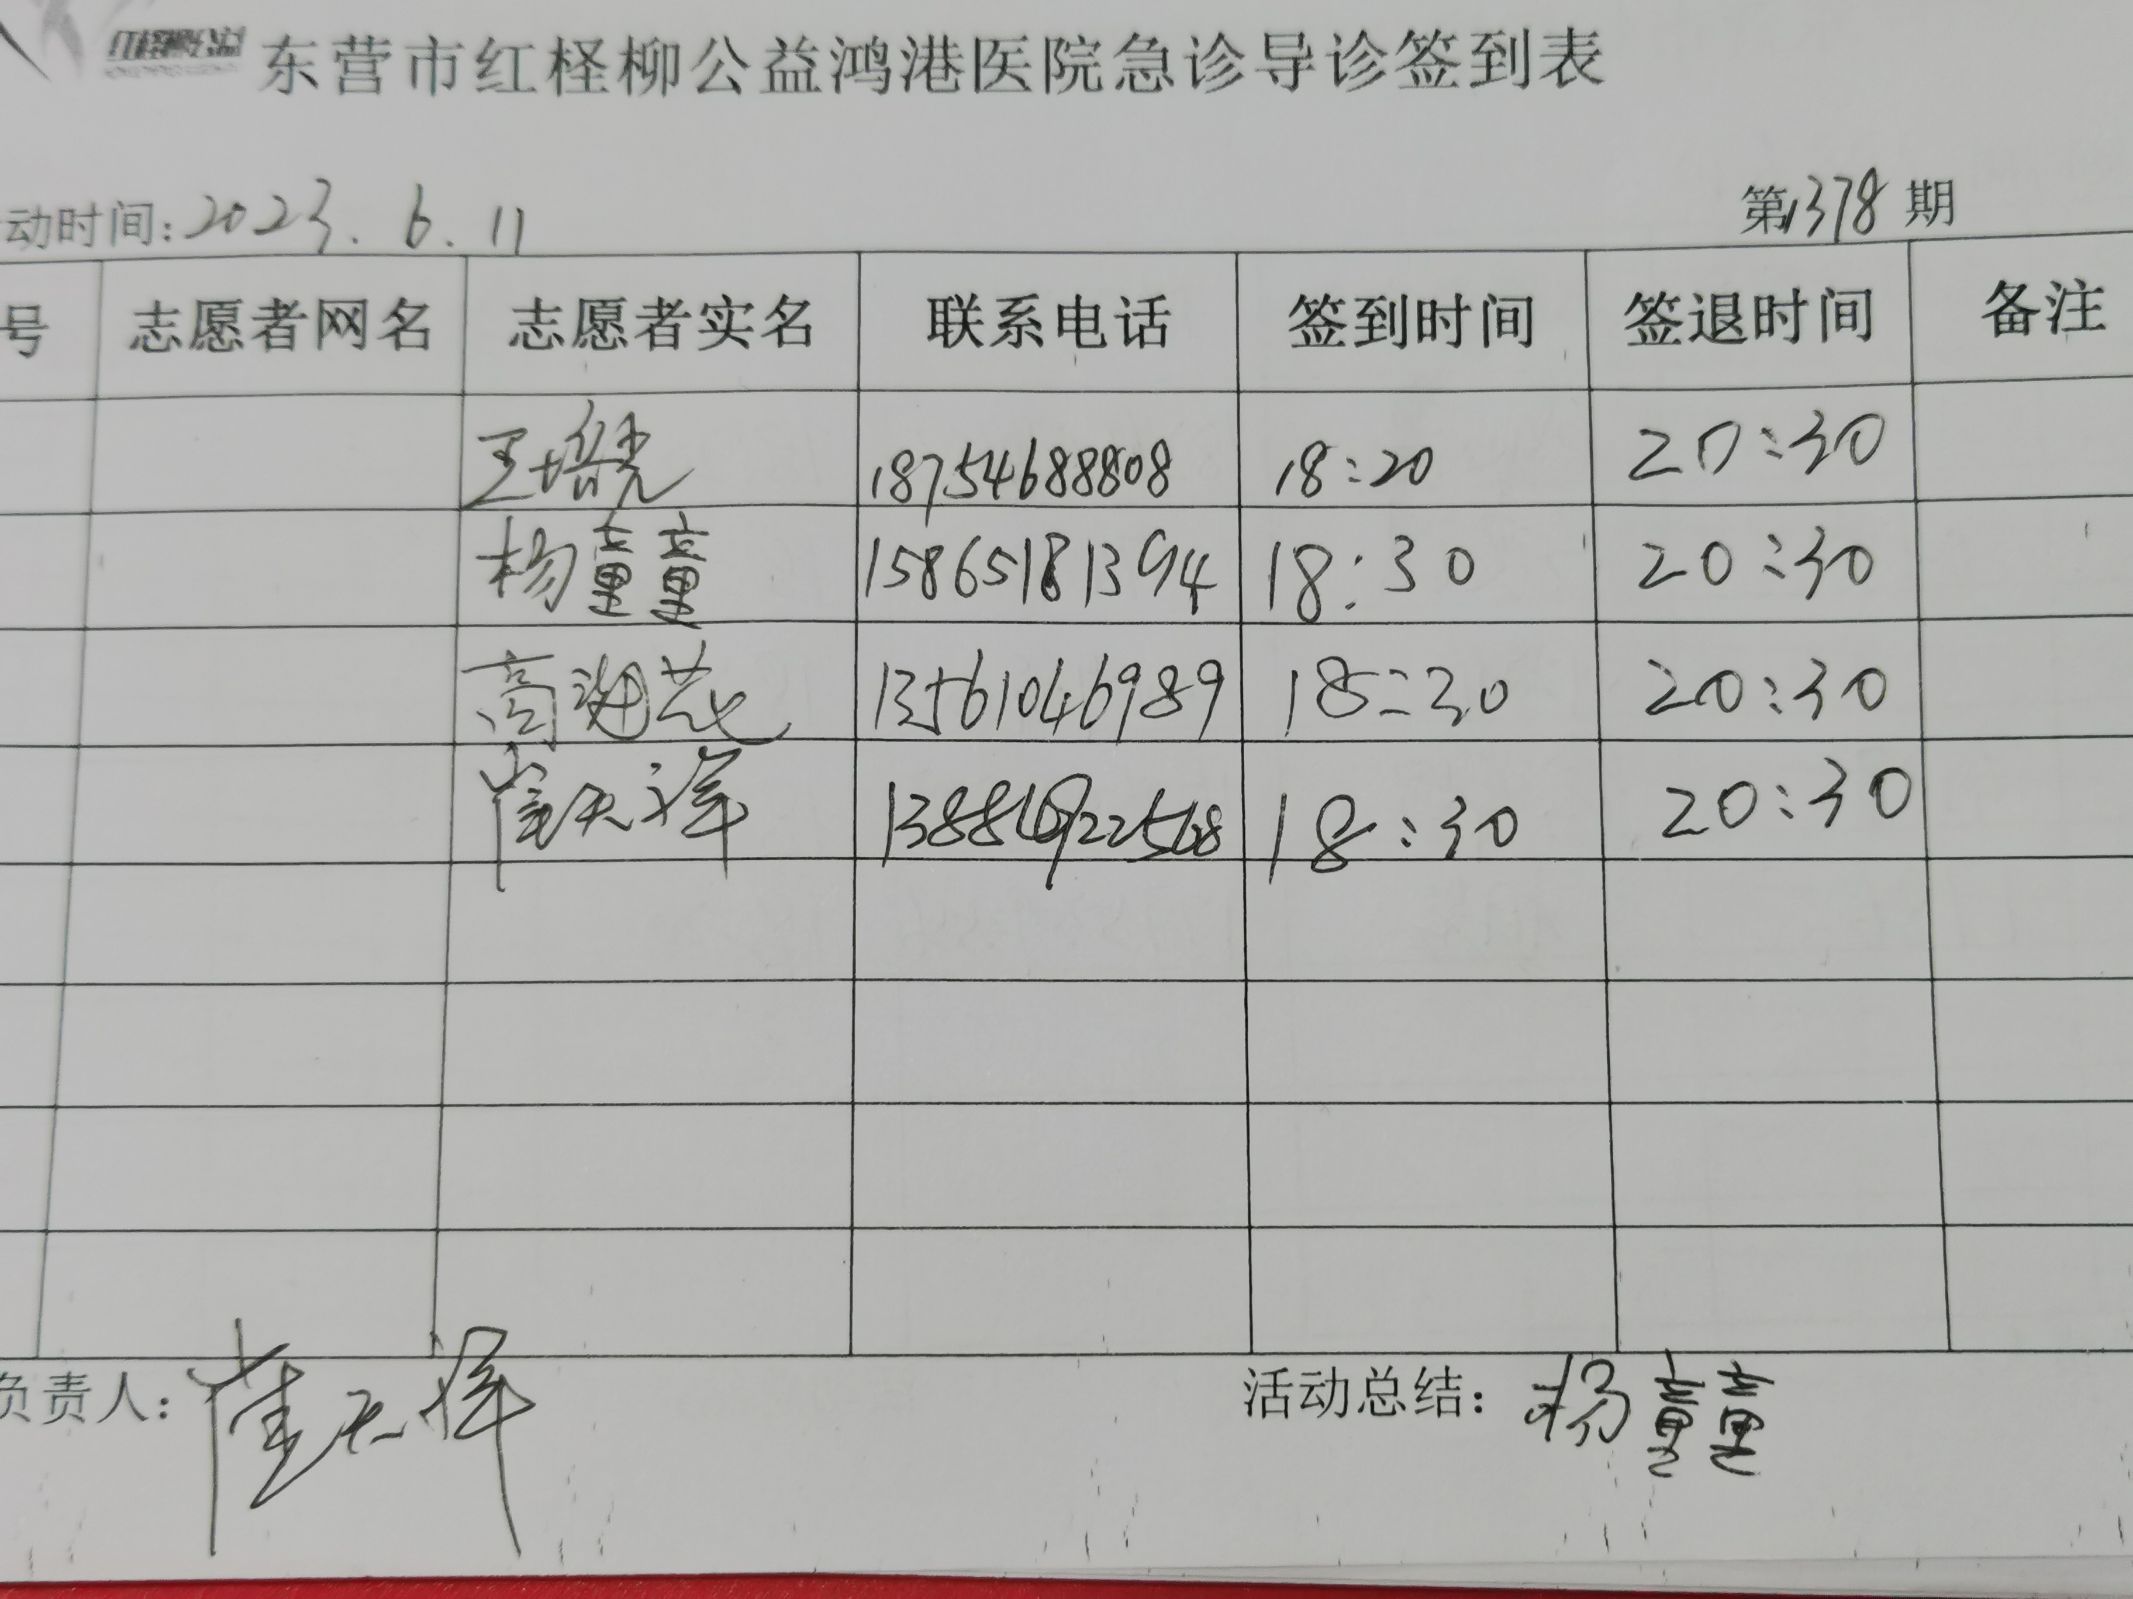 东营市红柽柳公益鸿港医院急诊导诊签到表
动时间:2023.6.11 第1378期
号 志愿者网名 志愿者实名 联系电话 签到时间 签退时间 备注
王培光 18754688808 18:20 20:30
杨童童 15865181394 18:30 20:30
高海芹 13561046989 18:30 20:30
崔天祥 18:30 20:30
负责人:崔天祥 活动总结:杨童童